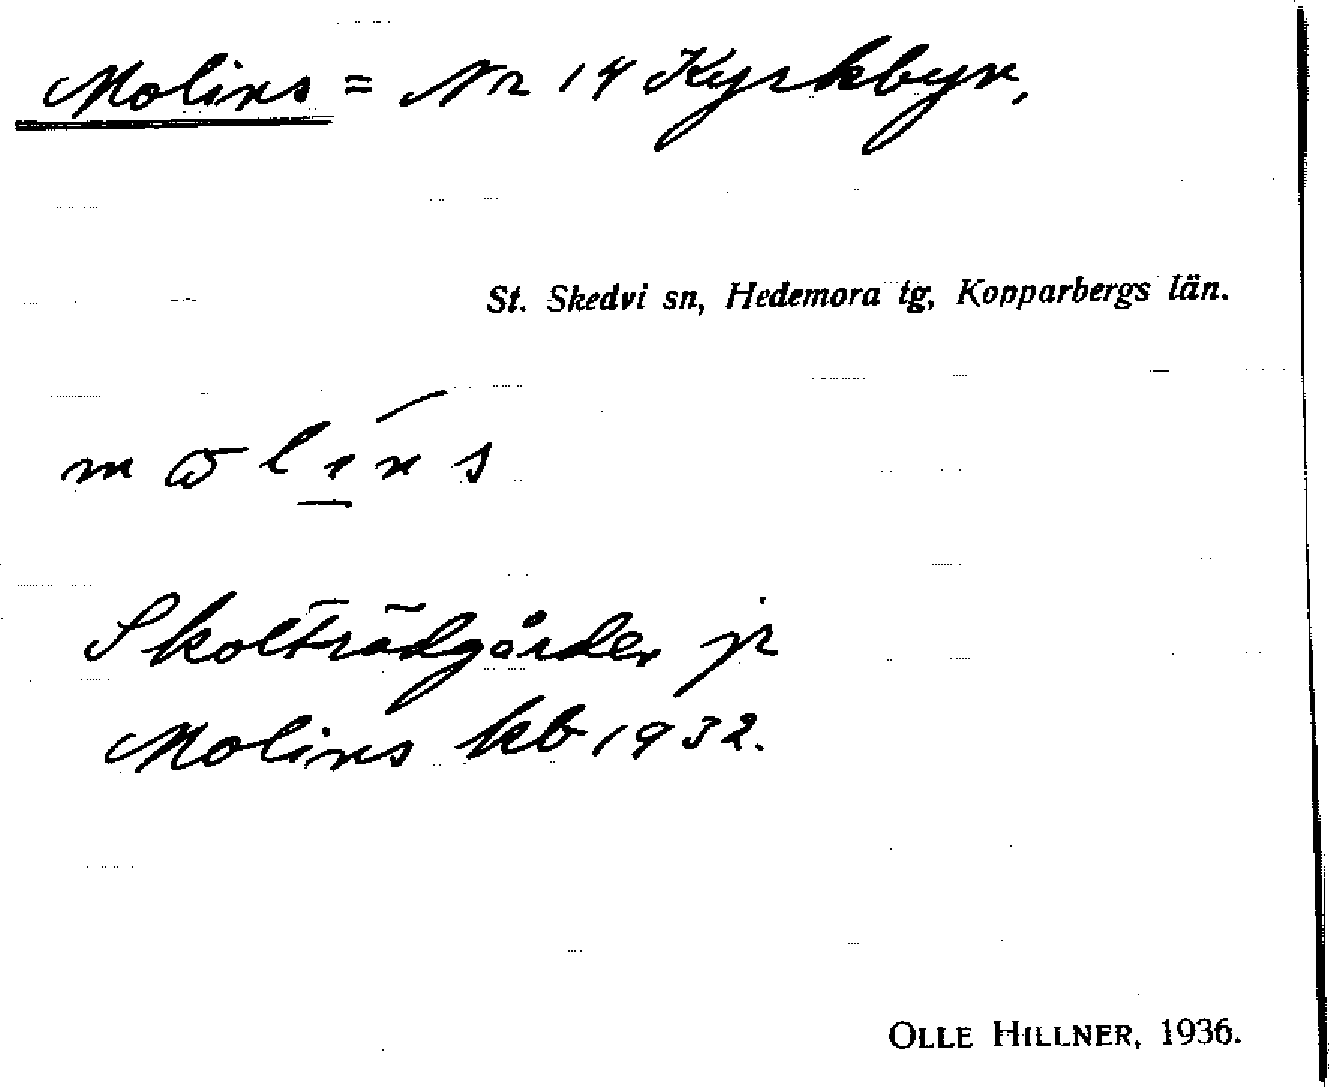 Molins = Nr 14 Kyrkbyn,
St. Skedvi sn, Hedemora tg, Kopparbergs län.
Skolträdgården på
Molins kb 1932.
OLLE HILLNER, 1936.